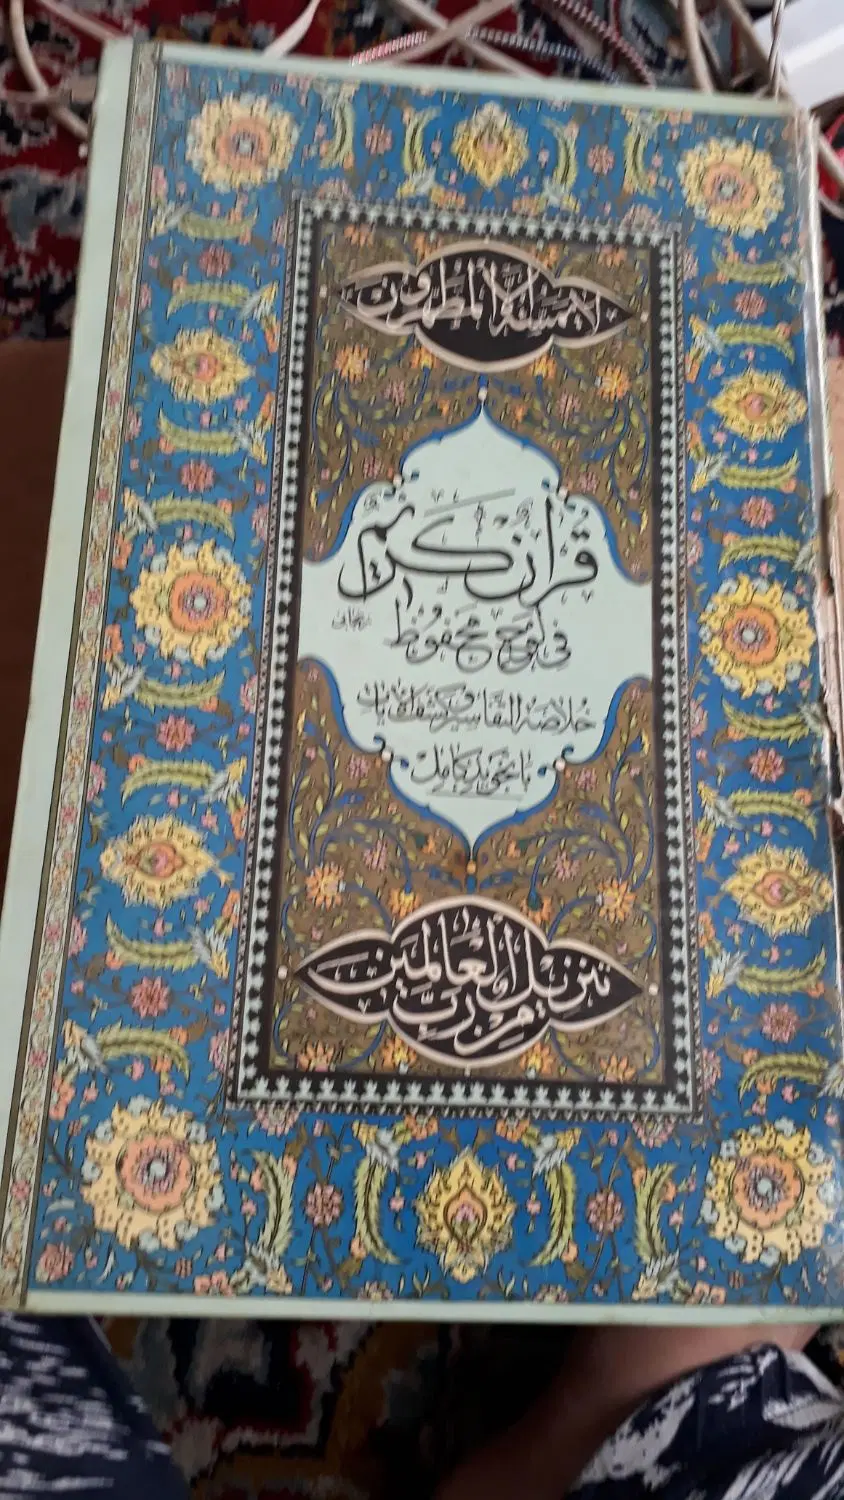 لا يمسه الا المطهرون
قرآن كريم
في لوح محفوظ
خلاصة التفاسير و كشف الآيات
با تجويد كامل
تنزيل من رب العالمين